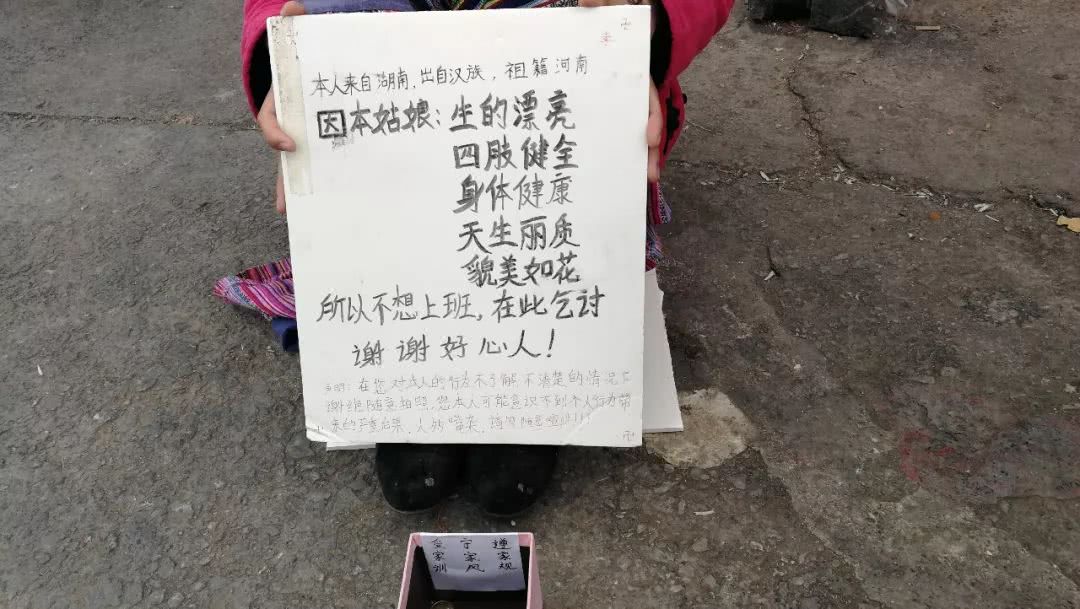 本人来自湖南,出自汉族,祖籍河南
因本姑娘:坐的漂亮
四肢健全
身体健康
天生丽质
貌美如花
所以不想上班,在此乞讨
谢谢好心人!
在您对本人的行为不了解不清楚的情况下
谢绝随意拍照,您本人可能意识不到个人行为带
来的严重后果,人间
家训
守家风
遵家规